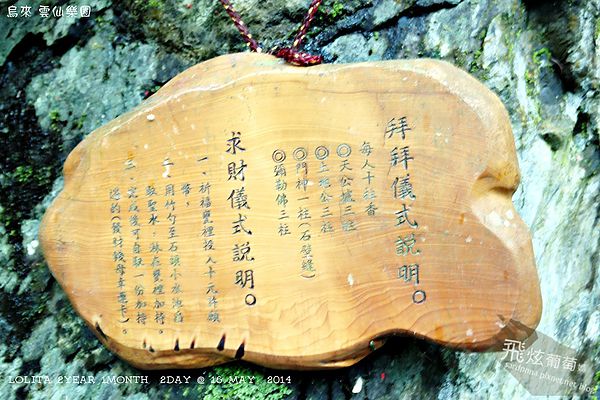 烏來 雲仙樂園
拜拜儀式說明。
每人十柱香
◎天公爐三柱
◎土地公三柱
◎門神一柱(石壁縫)
◎彌勒佛三柱
求財儀式說明。
一、祈福甕裡投入十元許願
幣。
二、用竹勺至石頭小水池舀
取聖水，放在甕裡加持。
三、完成後可自取一份加持
過的(發財錢母幸運卡)。
LOLITA 2YEAR 1MONTH 2DAY @ 16 MAY 2014
飛炫葡萄